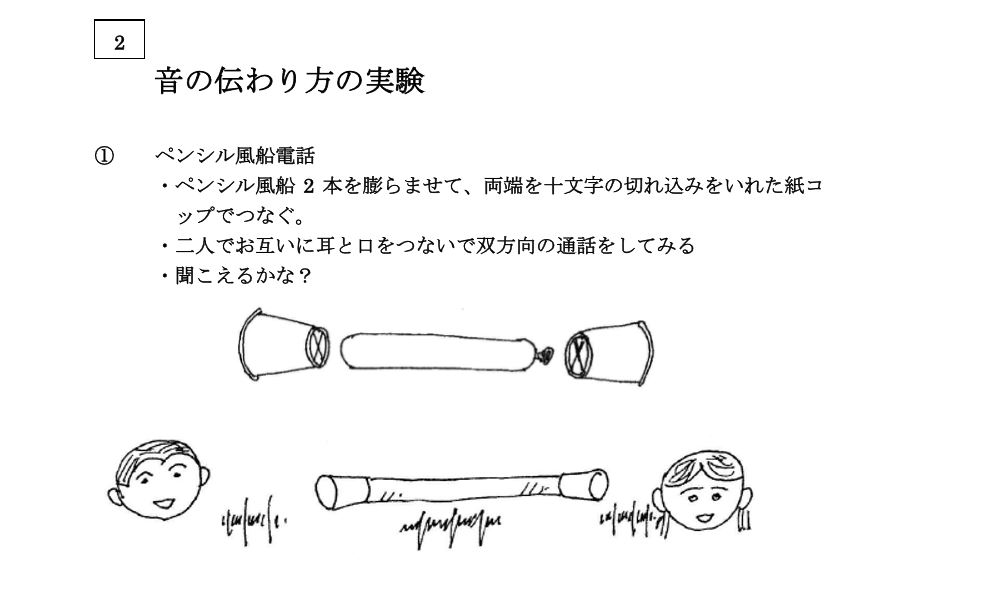 2
音の伝わり方の実験
① ペンシル風船電話
・ペンシル風船 2 本を膨らませて、両端を十文字の切れ込みをいれた紙コ
ップでつなぐ。
・二人でお互いに耳と口をつないで双方向の通話をしてみる
・聞こえるかな？